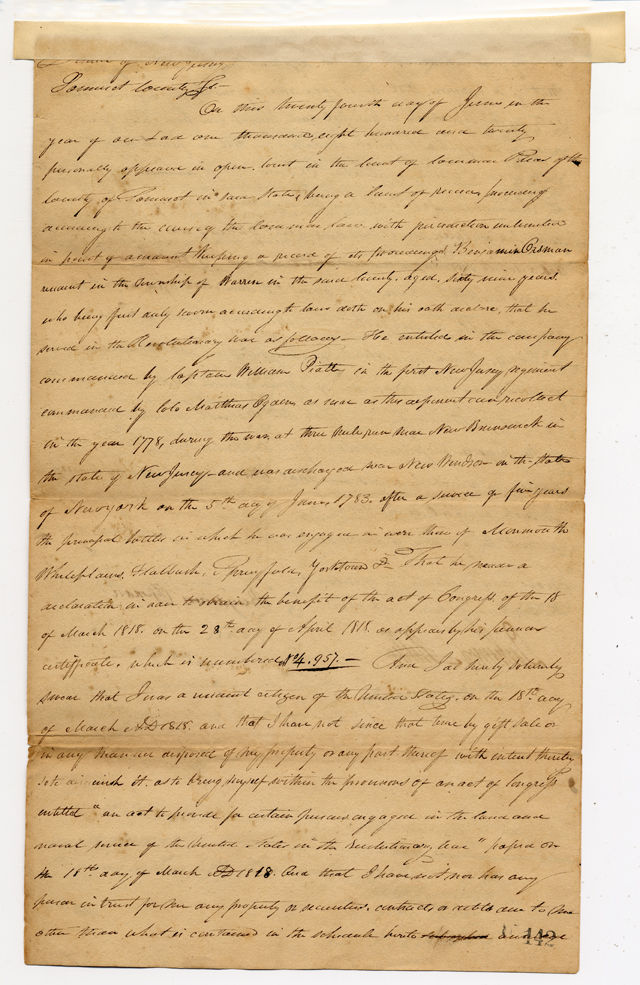 State of New Jersey
Somerset County Ss—
On this twenty fourth day of June in the
year of our Lord one thousand eight hundred and twenty
personally appeared in open Court in the Court of Common Pleas of the
County of Somerset in said State, being a Court of record, proceeding
according to the course of the Common law with jurisdiction unlimited
in point of amount keeping a record of its proceedings Benjamin Corsman
resident in the Township of Warren in the said County. aged, sixty nine years.
who being first duly sworn according to law doth on his oath declare, that he
served in the Revolutionary war as follows— He enlisted in the company
commanded by Captain William Piatt, in the first New Jersey regiment
commanded by Colo Matthias Ogden as near as this deponent can recollect
in the year 1778, during the war, at three mile run near New Brunswick in
the state of New Jersey—and was discharged near New Windsor in the State
of New york on the 5th day of June, 1783. after a service of five years
the principal battles in which he was engaged in were those of Monmouth
Whiteplains, Flatbush, Springfield, Yorktown &— That he made a
declaration in order to obtain the benefit of the act of Congress of the 18
of March 1818. on the 28th day of April 1818. as appears by his pension
certificate, which is numbered No 4.957.— And I do hereby solemnly
swear that I was a resident citizen of the United States. on the 18th day
of March AD 1818. and that I have not since that time by gift sale or
in any manner disposed of my property or any part thereof with intent thereby
so to diminish it. as to bring myself within the provisions of an act of Congress
entitled "an act to provide for certain persons engaged in the land and
naval service of the United States in the Revolutionary War" passed on
the 18th day of March AD 1818. And that I have not nor has any
person in trust for me any property or securities, contracts or debts due to me
other than what is contained in the schedule hereto annexed
142